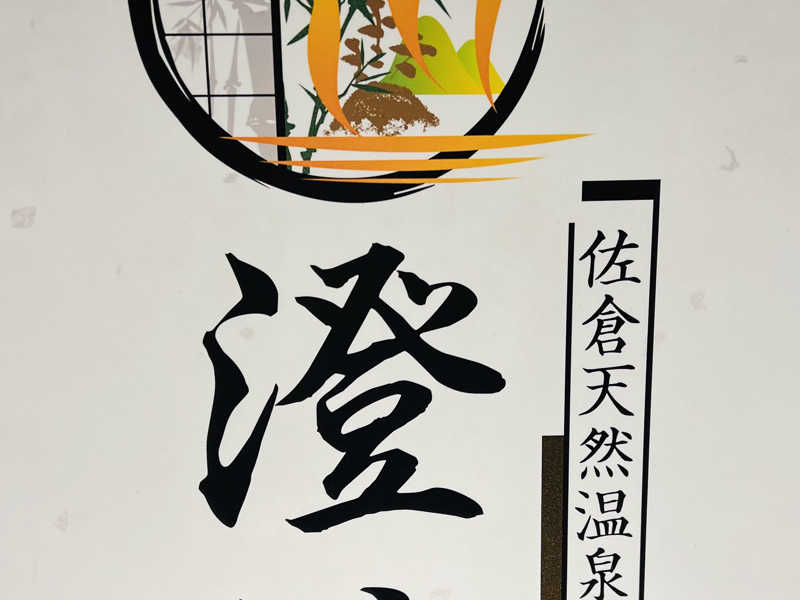 佐倉天然温泉
澄